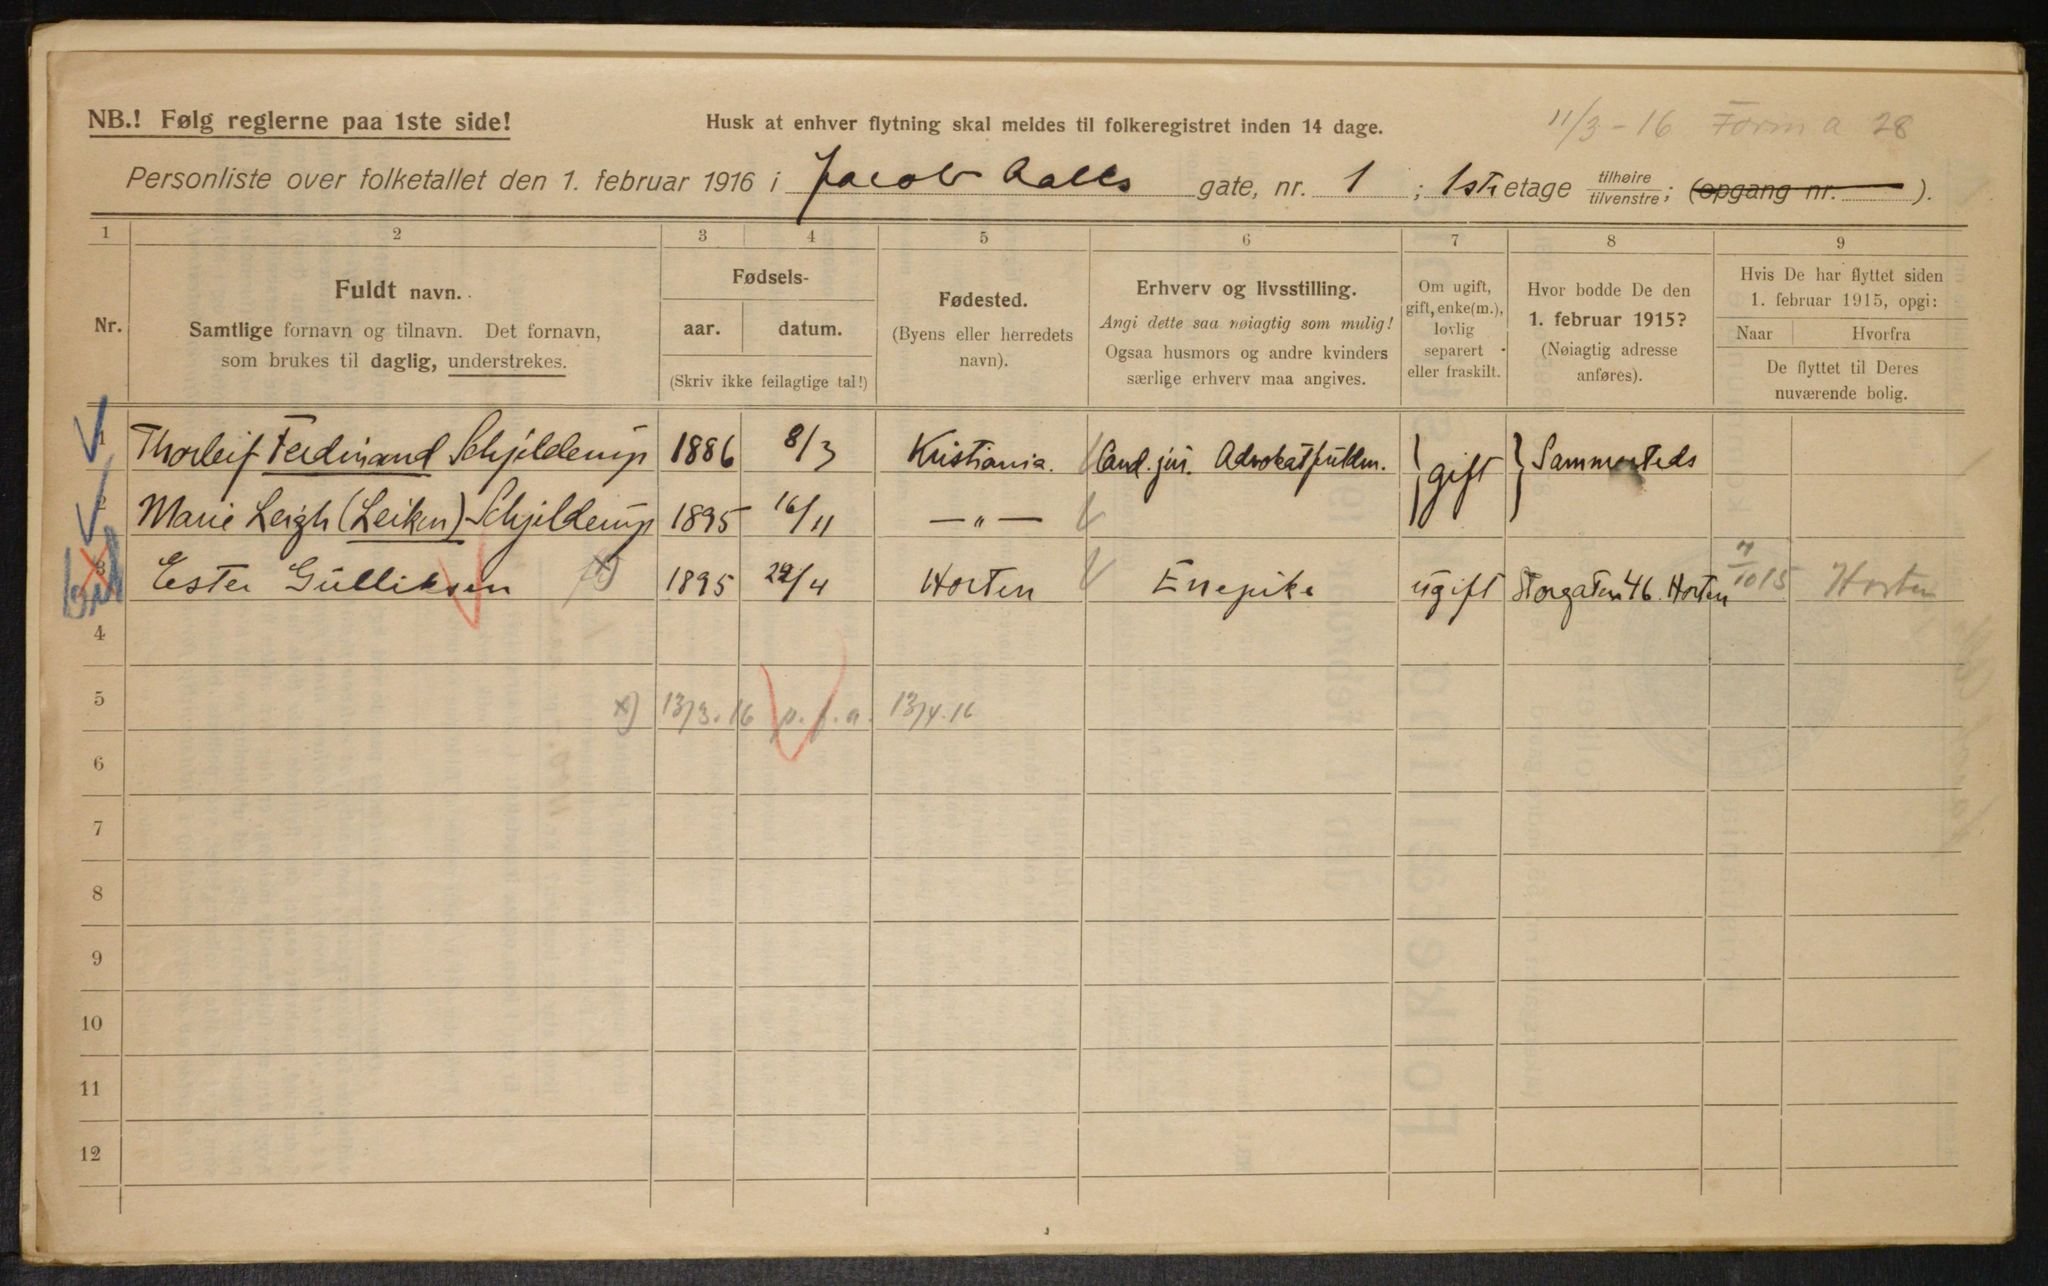 NB.! Følg reglerne paa 1ste side!
Husk at enhver flytning skal meldes til folkeregistret inden 14 dage.
11/3 - 16 Form a 28
Personliste over folketallet den 1. februar 1916 i Jacob Aalls gate, nr. 1 ; 1ste etage tilhøire/tilvenstre; (opgang nr. ).
1 2 3 4 5 6 7 8 9
Nr.
Fuldt navn.
Samtlige fornavn og tilnavn. Det fornavn,
som brukes til daglig, understrekes.
Fødsels-
aar. datum.
(Skriv ikke feilagtige tal!)
Fødested.
(Byens eller herredets
navn).
Erhverv og livsstilling.
Angi dette saa nøiagtig som mulig!
Ogsaa husmors og andre kvinders
særlige erhverv maa angives.
Om ugift,
gift, enke(m.),
lovlig
separert
eller fraskilt.
Hvor bodde De den
1. februar 1915?
(Nøiagtig adresse
anføres).
Hvis De har flyttet siden
1. februar 1915, opgi:
Naar Hvorfra
De flyttet til Deres
nuværende bolig.
1 Thorleif Ferdinand Schjelderup 1886 8/3 Kristiania. Cand. jur. Advokatfuldm. } gift } Sammesteds
2 Marie Leigh (Leiken) Schjelderup 1895 16/11 — " —
3 Ester Gulliksen x) 1895 22/4 Horten Enepike ugift Storgaten 46. Horten 10 15 Horten
4
5 x) 13/3. 16 p. f. a. 13/4. 16
6
7
8
9
10
11
12